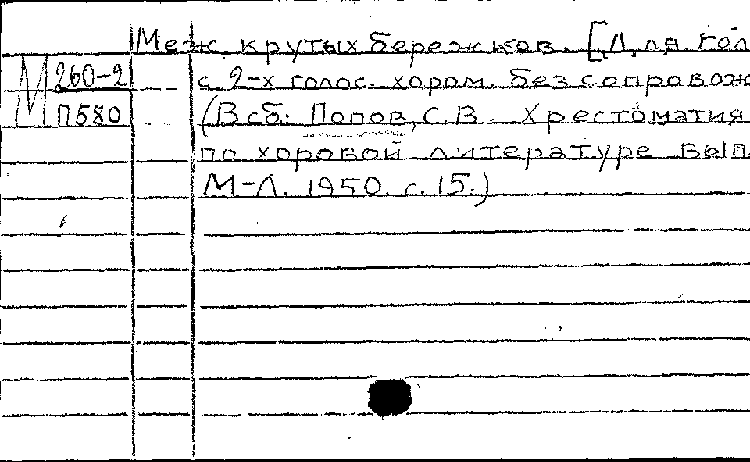 Меж крутых бережков. [Для гол
М 260-2 с 2-х голос. хором. без сопровож
П580 (В сб: Попов, С.В. Хрестоматия
по хоровой литературе вып
М-Л. 1950. с. 15.)